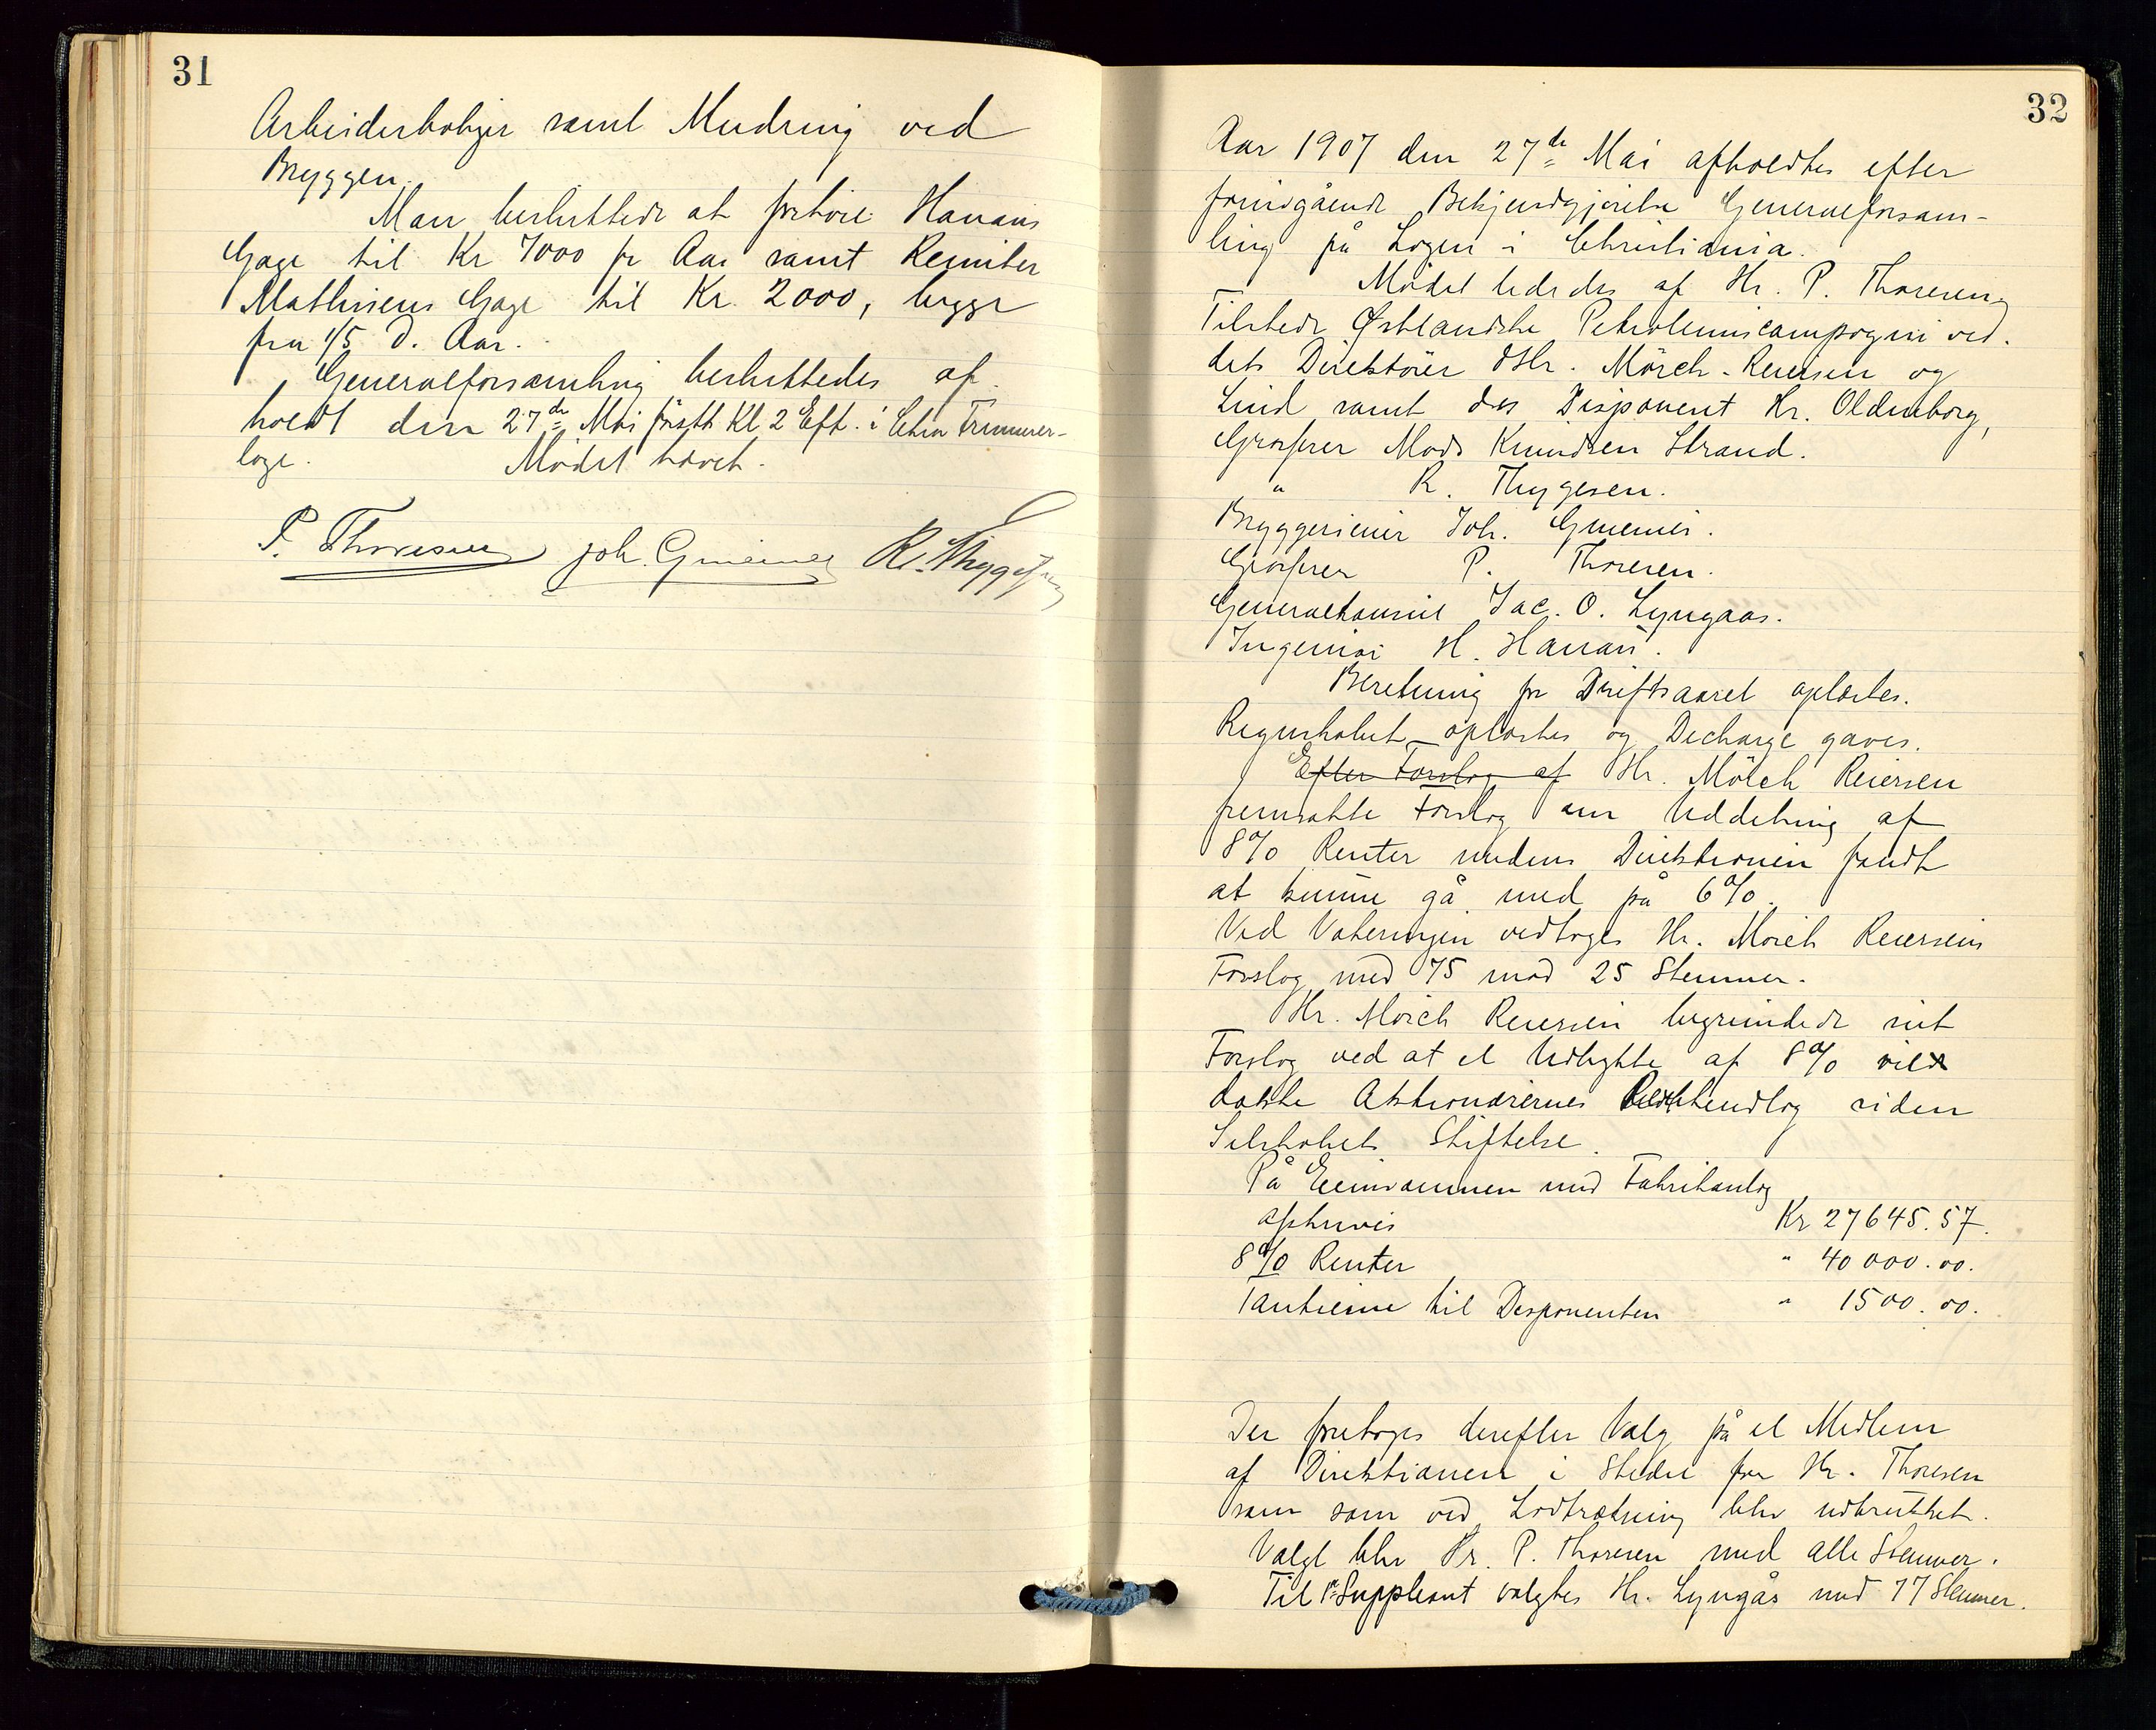 31
Arbeiderboliger samt Mudring ved
Bryggen.
Man besluttede at forhøie Hanans
Gage til Kr 7000 pr Aar samt Kemiker
Mathisens Gage til Kr. 2000, begge
fra 1/5 d. Aar.
Generalforsamling besluttedes af-
holdt den 27de Mai førstk Kl 2 Eft. i Chra Frimurer-
loge. Mødet hævet.
P. Thoresen Joh. Gmeiner R. Thygesen
32
Aar 1907 den 27de Mai afholdtes efter
foregående Bekjendtgjørelse Generalforsam-
ling på Logen i Christiania.
Mødet lededes af Hr. P. Thoresen,
Tilstede Østlandske Petroleumscompagni ved.
dets Direktører DHr. Mörch-Reiersen og
Lind samt des Disponent Hr. Oldenborg,
Grosserer Mads Knudsen Strand.
" R. Thygesen.
Bryggerieier Joh. Gmeiner.
Grosserer P. Thoresen.
Generalkonsul Jac. O. Lyngaas.
Ingeniør H. Hanan.
Beretning for Driftsaaret oplæstes.
Regnskabet oplæstes og Decharge gaves.
Efter Forslag af Hr. Mörch Reiersen
fremsatte Forslag om Uddeling af
8% Renter medens Direktionen fandt
at kunne gå med på 6%.
Ved Voteringen vedtoges Hr. Mörch Reiersens
Forslag med 75 mod 25 Stemmer.
Hr. Mörch Reiersen begrundede sit
Forslag ved at et Udbytte af 8% vil
dække Aktionærernes Rentetab siden
Selskabets Stiftelse.
På Eiendommen med Fabrikanlæg
afskrives Kr 27645.57.
8% Renter " 40 000.00.
Tantieme til Disponenten " 1500.00.
Der foretoges derefter Valg på et Medlem
af Direktionen i Stedet for Hr. Thoresen
som som ved Lodtrækning blev udtrukket.
Valgt blev Hr. P. Thoresen med alle Stemmer.
Til 1ste Suppleant valgtes Hr. Lyngås med 77 Stemmer.